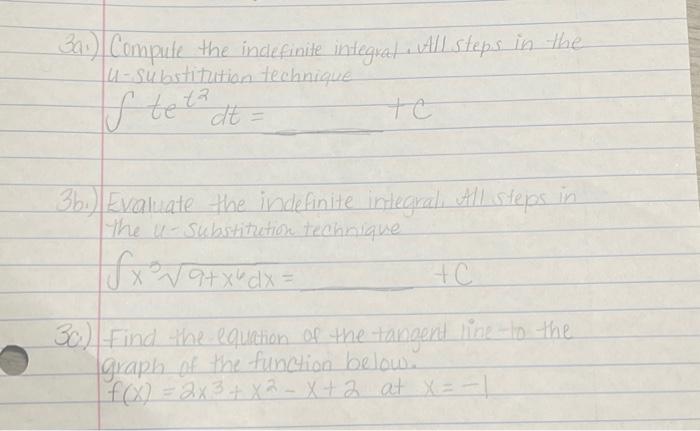 3a.) Compute the indefinite integral. All steps in the
u-substitution technique
∫ te^{t^2} dt = ______ + C
3b.) Evaluate the indefinite integral. All steps in
the u-substitution technique
∫ x^5 √(9+x^6) dx = ______ + C
3c.) Find the equation of the tangent line to the
graph of the function below.
f(x) = 2x^3 + x^2 - x + 2 at x = -1